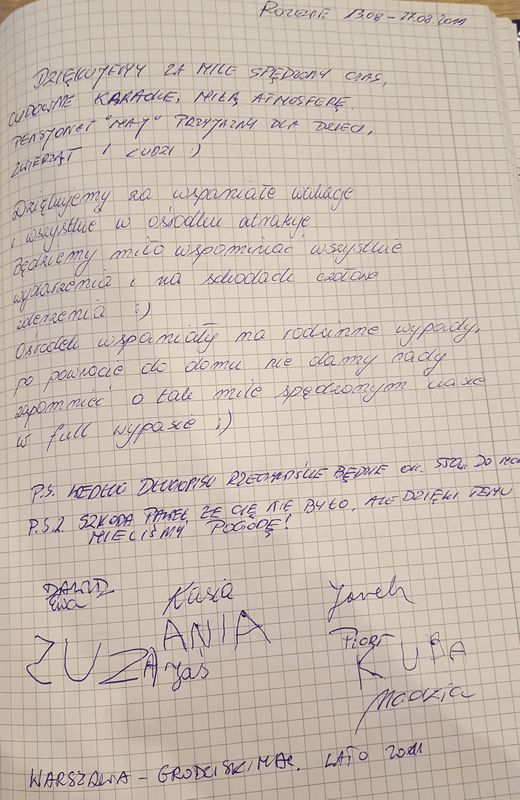 ROZEWIE 13.08 - 27.08.2011
DZIĘKUJEMY ZA MILE SPĘDZONY CZAS,
CUDOWNE KARAOKE, MIŁĄ ATMOSFERĘ.
PENSJONAT "MAY" PRZYJAZNY DLA DZIECI,
ZWIERZĄT I LUDZI :)
Dziękujemy za wspaniałe wakacje
i wszystkie w ośrodku atrakcje.
Będziemy miło wspominać wszystkie
wydarzenia i na schodach czołowe
zderzenia :)
Ośrodek wspaniały na rodzinne wypady,
po powrocie do domu nie damy rady
zapomnieć o tak mile spędzonym czasie
w full wypasie ;)
P.S. WEDŁUG DŁUGOPISU RZECZYWIŚCIE BĘDZIE OK. 550m DO
P.S.2 SZKODA PAWEŁ, ŻE CIĘ NIE BYŁO, ALE DZIĘKI TEMU
MIELIŚMY POGODĘ!
DAWID Kasia Jarek
Ewa
ZUZA ANIA Piotr
Jaś KUBA
Madzia
WARSZAWA - GRODZISK MAZ. LATO 2011